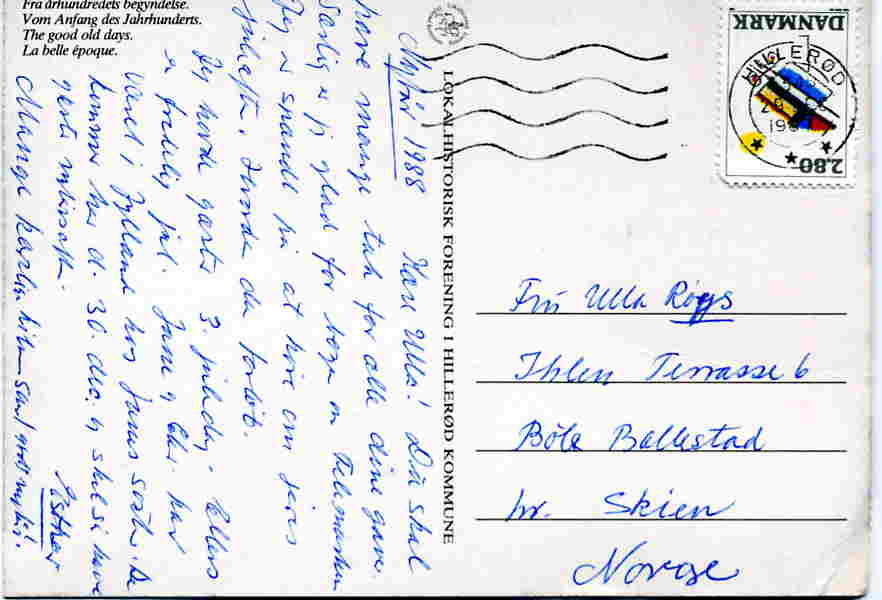 Fra århundredets begyndelse.
Vom Anfang des Jahrhunderts.
The good old days.
La belle époque.
Nytår 1988 Kære Ulla! Du skal
have mange tak for alle dine gaver.
Særlig er jeg glad for bogen om Telemarken
Jeg er spændt på at høre om jeres
julehefte. Hvordan du forløb.
Jeg havde gæster 3. juledag. Ellers
en fredelig jul. Jane og har
været i Jylland hos Janes søster. De
kommer her d. 30. dec. og skal så have
gæster nytårsaften.
Mange kærlige hilsner samt godt nytår.
Esther
LOKALHISTORISK FORENING I HILLERØD KOMMUNE
DANMARK
2.80
HILLERØD
29
198
Fru Ulla Røgs
Ihlen Terrasse 6
Böle Ballestad
pr. Skien
Norge